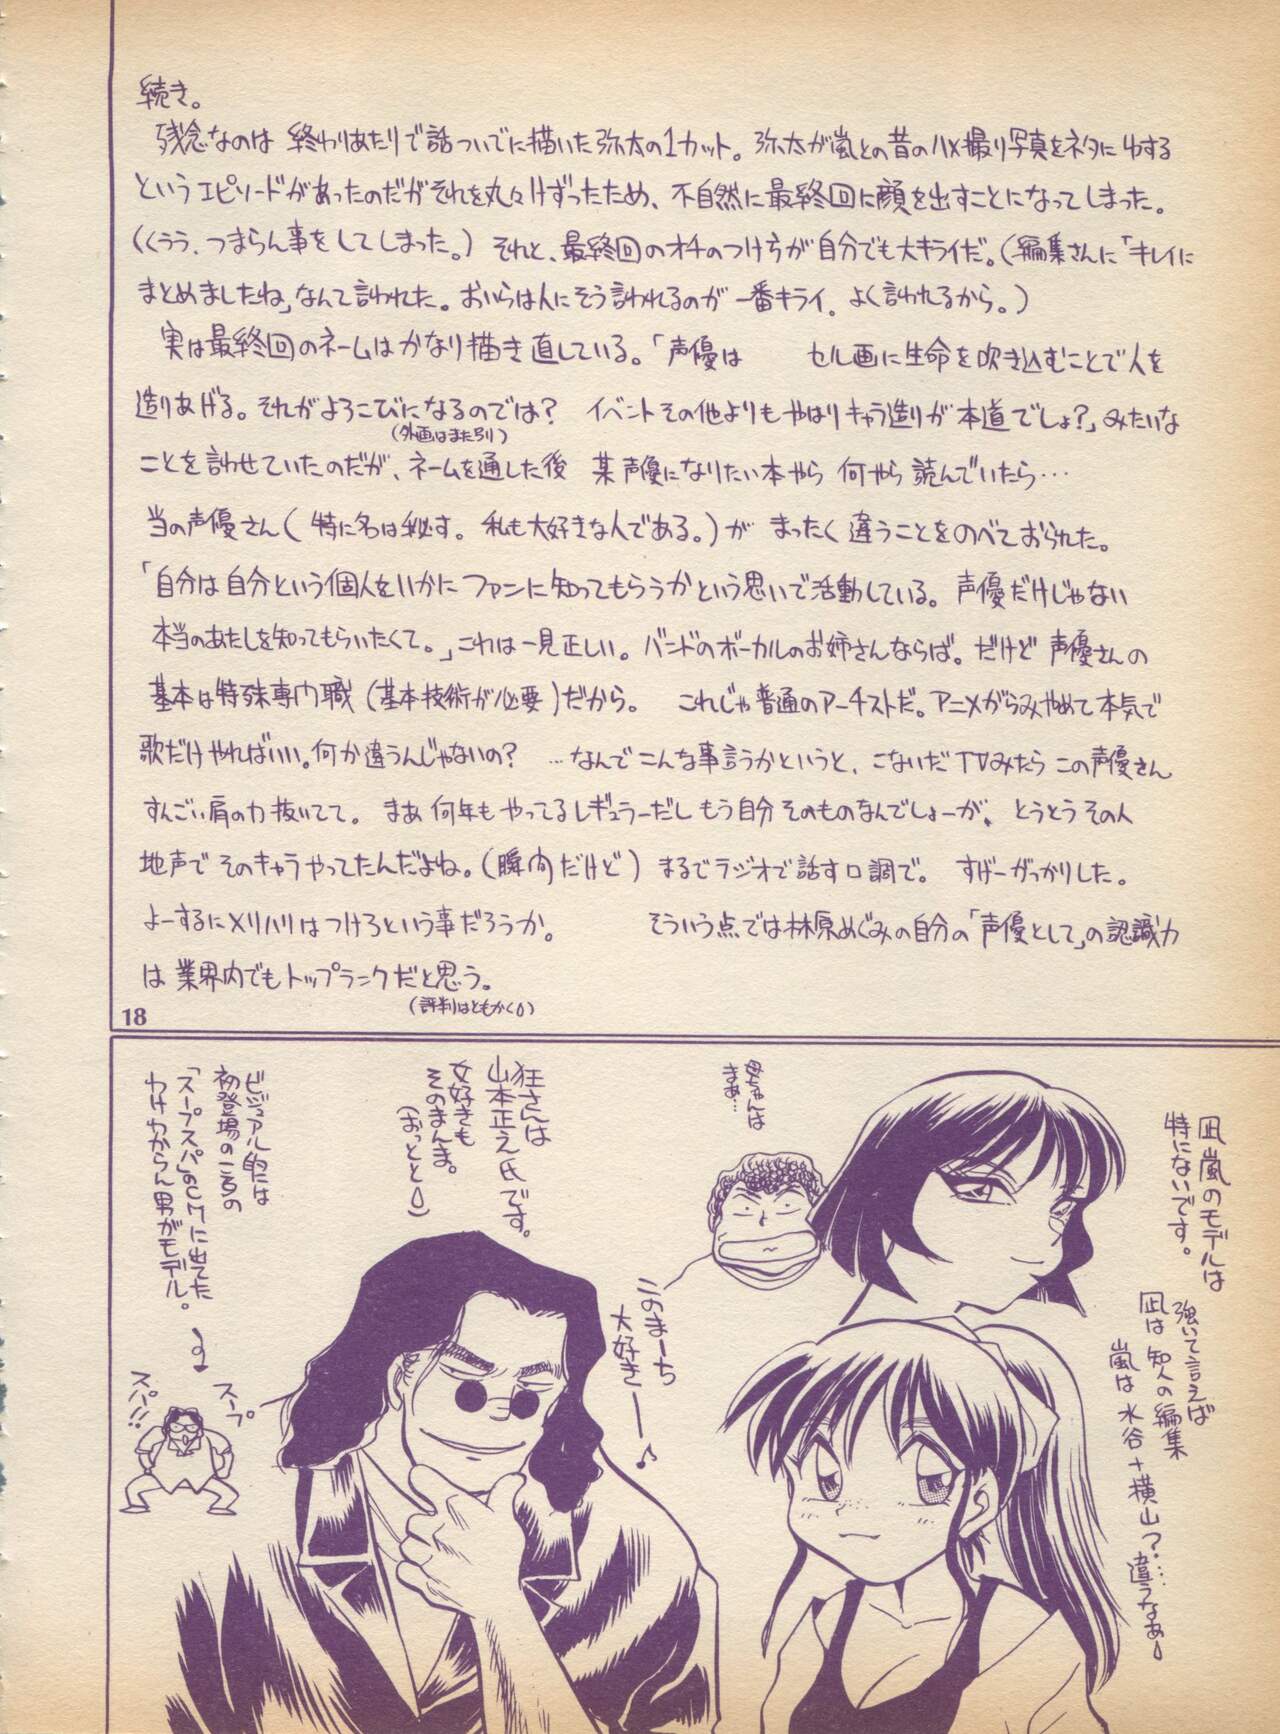 続き。
残念なのは 終わりあたりで話ついでに描いた弥太の1カット。弥太が嵐との昔のハメ撮り写真をネタにゆする
というエピソードがあったのだがそれを丸々けずったため、不自然に最終回に顔を出すことになってしまった。
(くうう、つまらん事をしてしまった。)それと、最終回のオチのつけ方が自分でも大キライだ。(編集さんに「キレイに
まとめましたね」なんて言われた。おいらは人にそう言われるのが一番キライ。よく言われるから。)
実は最終回のネームはかなり描き直している。「声優は セル画に生命を吹き込むことで人を
造りあげる。それがよろこびになるのでは? イベントその他よりもやはりキャラ造りが本道でしょ?」みたいな
(外画はまた別)
ことを言わせていたのだが、ネームを通した後 某声優になりたい本やら何やら読んでいたら…
当の声優さん(特に名は秘す。私も大好きな人である。)が まったく違うことをのべておられた。
「自分は自分という個人をいかにファンに知ってもらうかという思いで活動している。声優だけじゃない
本当のあたしを知ってもらいたくて。」これは一見正しい。バンドのボーカルのお姉さんならば。だけど声優さんの
基本は特殊専門職(基本技術が必要)だから。 これじゃ普通のアーチストだ。アニメがらみやめて本気で
歌だけやればいい。何か違うんじゃないの? …なんでこんな事言うかというと、こないだTVみたらこの声優さん
すんごい肩の力抜いてて。まあ何年もやってるレギュラーだしもう自分そのものなんでしょーが、とうとうその人
地声でそのキャラやってたんだよね。(瞬間だけど)まるでラジオで話す口調で。すげーがっかりした。
よーするにメリハリはつけろという事だろうか。 そういう点では林原めぐみの自分の「声優として」の認識力
は業界内でもトップランクだと思う。
(評判はともかく)
18
凪嵐のモデルは
特にないです。
強いて言えば
凪は知人の編集
嵐は水谷+横山?…
違うなあ
母ちゃんは
まあ…
このまーち
大好きー♪
狂さんは
山本正之氏です。
女好きも
そのまんま。
(おっとと)
ビジュアル的には
初登場の一言の
「スープスパ」のCMに出てた
わけわからん男がモデル。
スープ
スパ!!